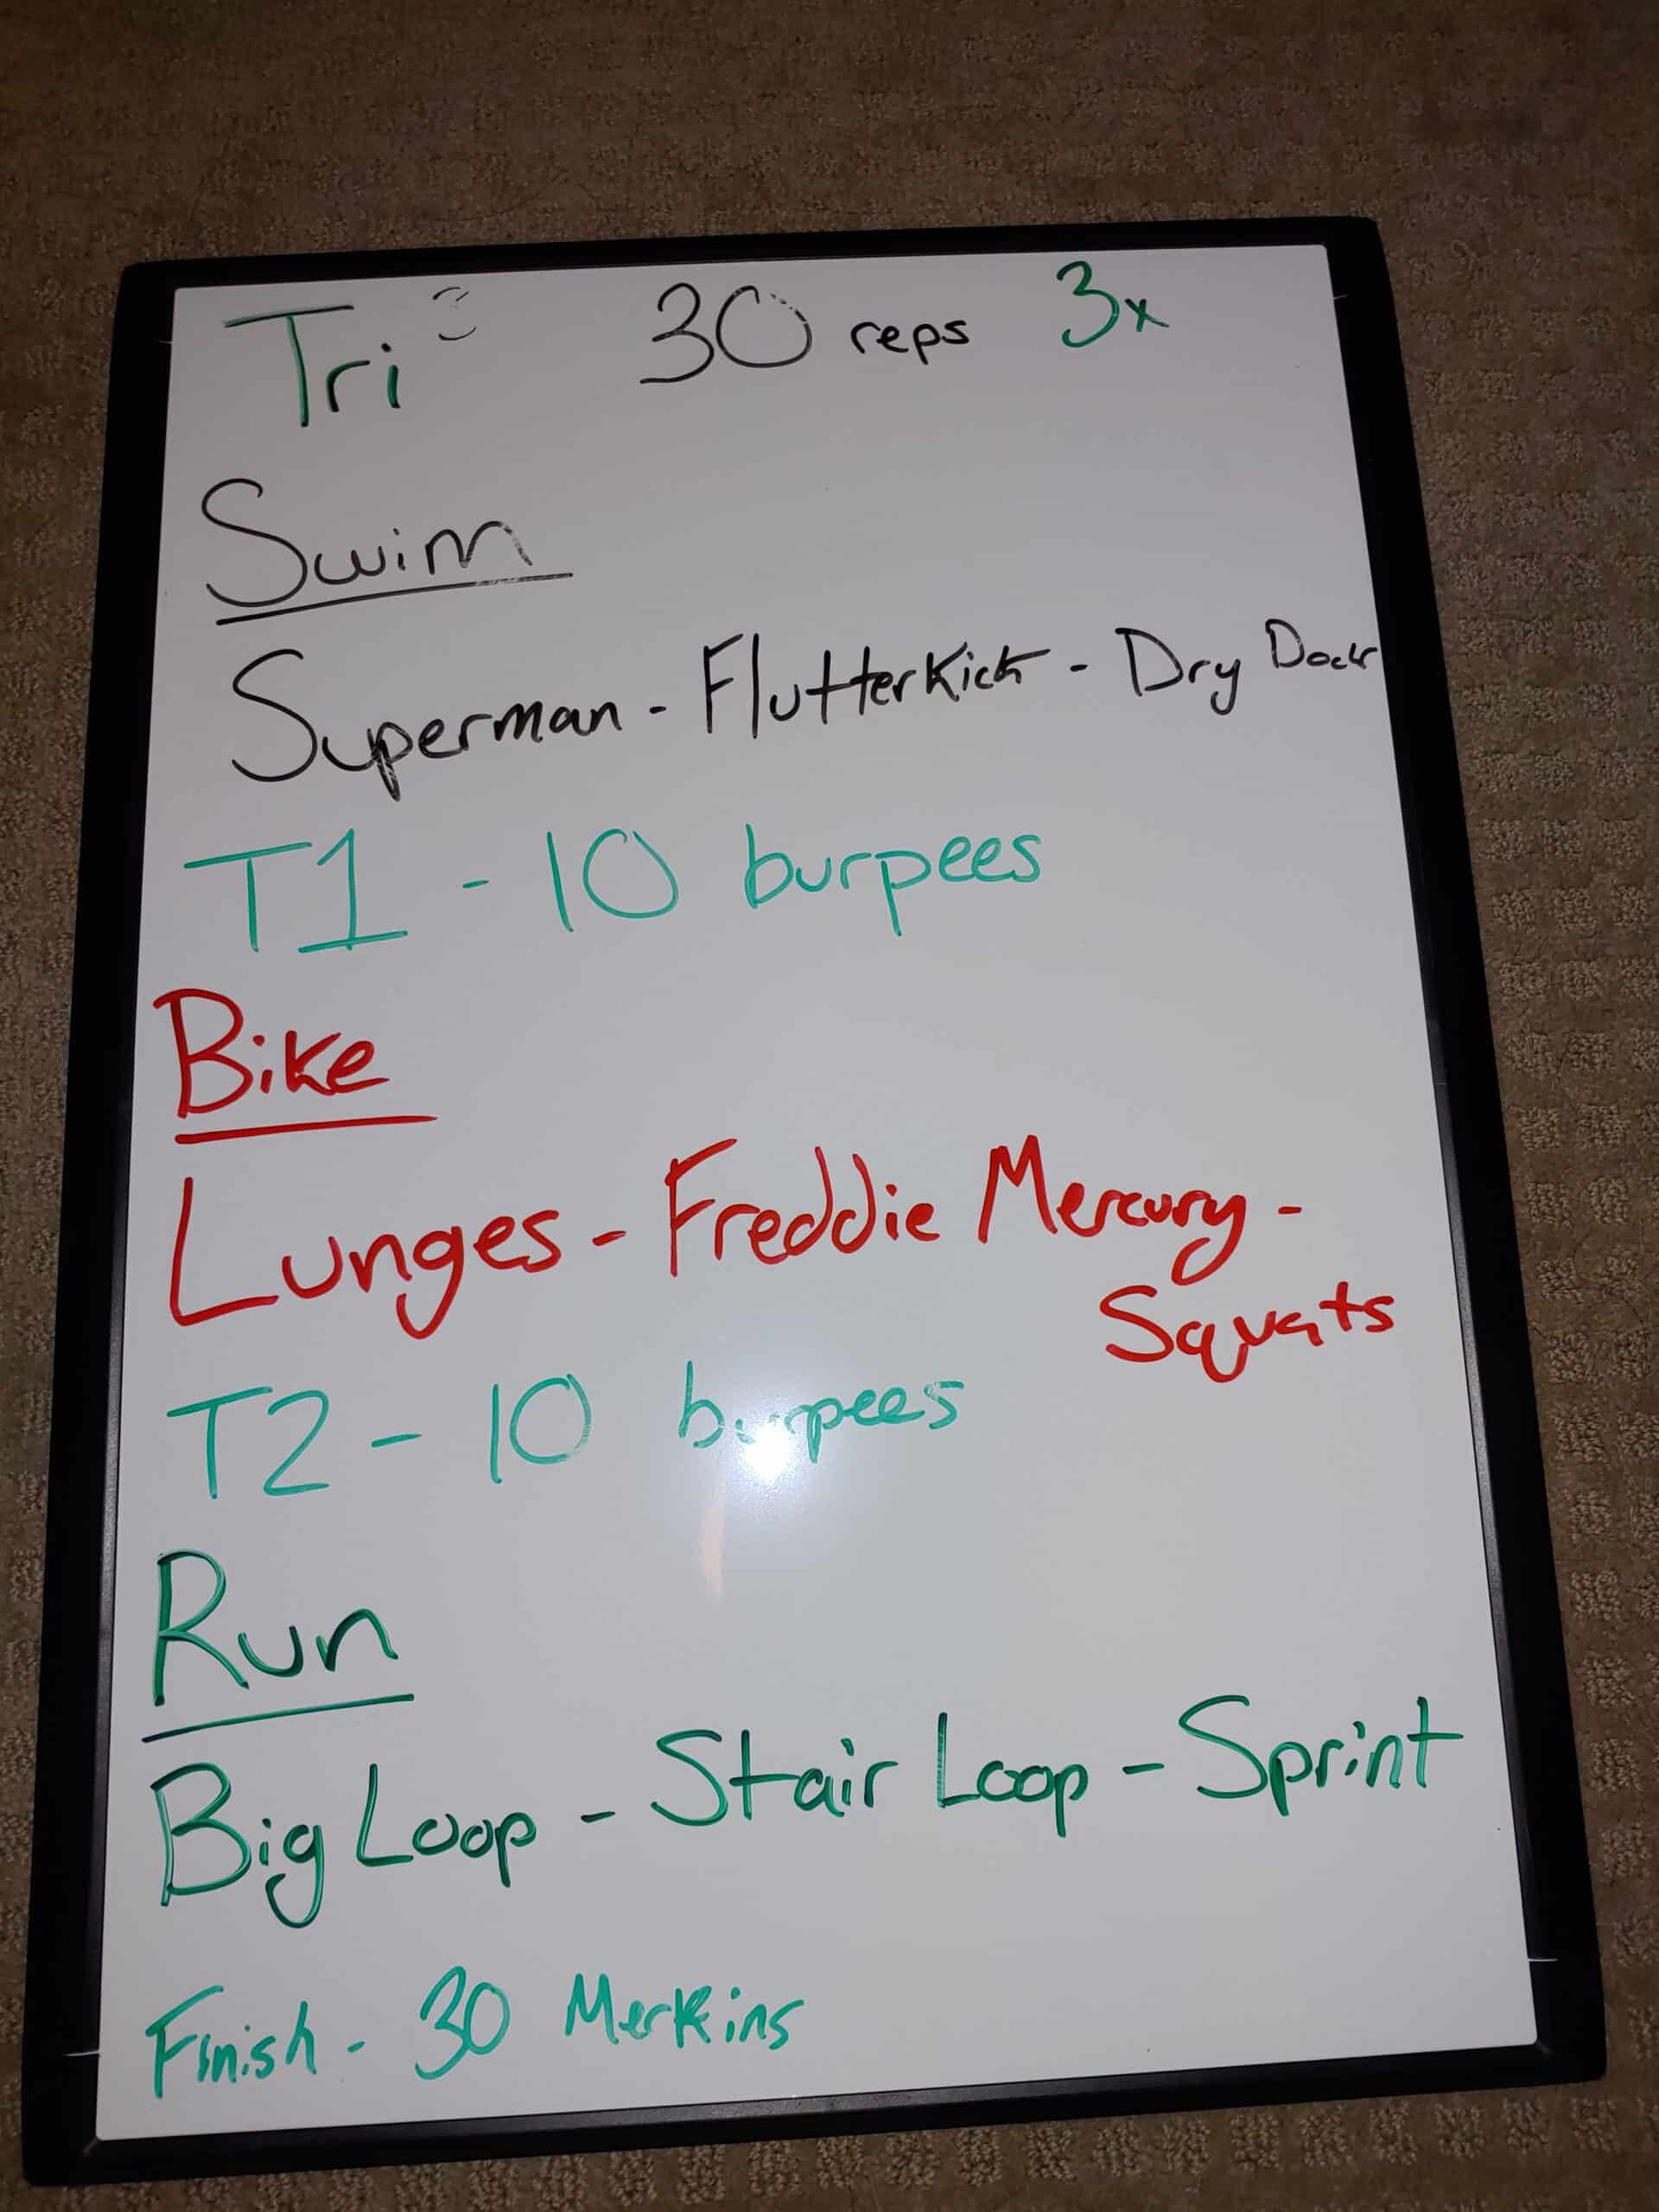 Tri 30 reps 3x
Swim
Superman - Flutterkick - Dry Dock
T1 - 10 burpees
Bike
Lunges - Freddie Mercury -
Squats
T2 - 10 burpees
Run
Big Loop - Stair Loop - Sprint
Finish - 30 Merkins